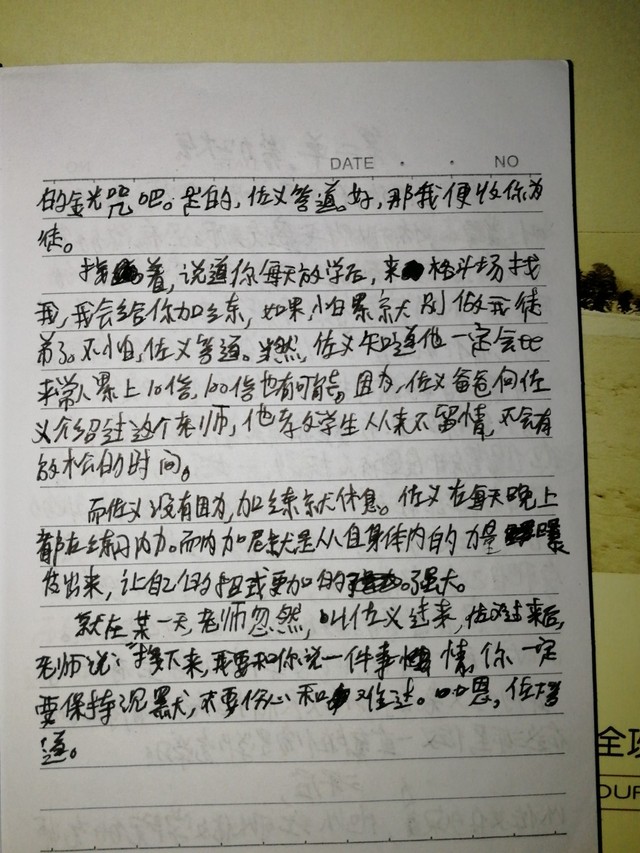 DATE · · NO
的金光咒吧。是的，佐义答道。好，那我便收你为
徒。
接着，说道你每天放学后，来格斗场找
我，我会给你加练，如果，怕累就大别做我徒
弟了。不怕，佐义答道。当然，佐义知道他一定会比
平常人累上10倍，100倍也有可能。因为，佐义爸爸向佐
义介绍过这个老师，他教学生从来不留情，不会有
放松的时间。
而佐义没有因为，加练就休息。佐义在每天晚上
都在练习内力。而内力就是从自身体内的力量爆
发出来，让自己的更加的强大。
就在某一天，老师忽然，叫佐义过来，佐义过来后，
老师说："接下来，我要和你说一件事情，你一定
要保持沉默，不要伤心和难过。嗯，佐答
道。
全
OUR